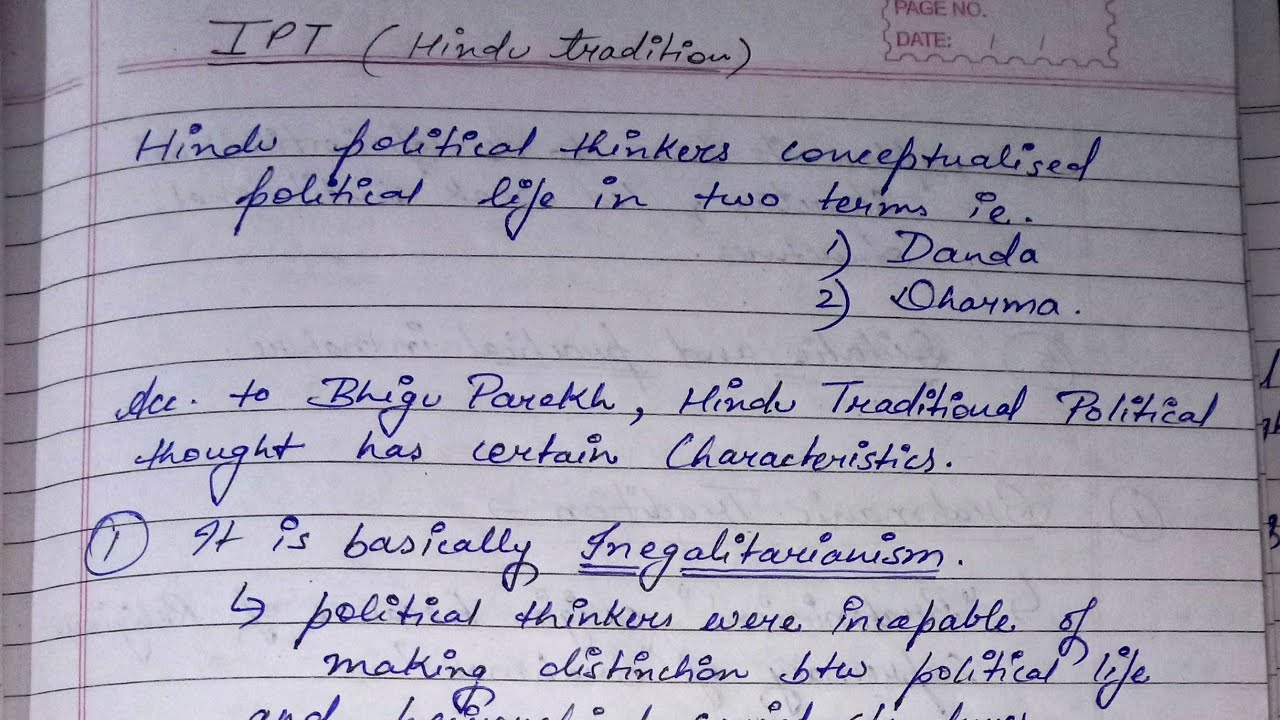 PAGE NO.
DATE: / /
IPT (Hindu tradition)
Hindu political thinkers conceptualised
political life in two terms ie.
1) Danda
2) Dharma.
Acc. to Bhigu Parekh, Hindu Traditional Political
thought has certain Characteristics.
1 It is basically Inegalitarianism.
↳ political thinkers were incapable of
making distinction btw political life
and